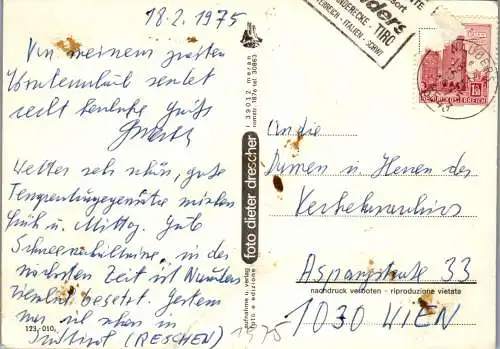 18.2.1975
Von meinem zweiten
Urlaub sendet
recht herzliche Grüße
Wetter sehr schön, gute
Temperaturgegensätze zwischen
früh u. Mittag. Gute
Schneeverhältnisse, in der
nächsten Zeit ist Nauders
ziemlich besetzt. Gestern
war ich schon in
Südtirol (RESCHEN)
123-010
1975
aufnahme u. verlag
foto e edizione
foto dieter drescher
i 39012 meran
romstr. 187e tel. 30863
ders
DREILÄNDERECKE - TIROL
ÖSTERREICH - ITALIEN - SCHWEIZ
NAUDERS
6543
An die
Damen und Herren des
Verkehrsarchivs
Aspangstraße 33
nachdruck verboten - riproduzione vietata
1030 WIEN